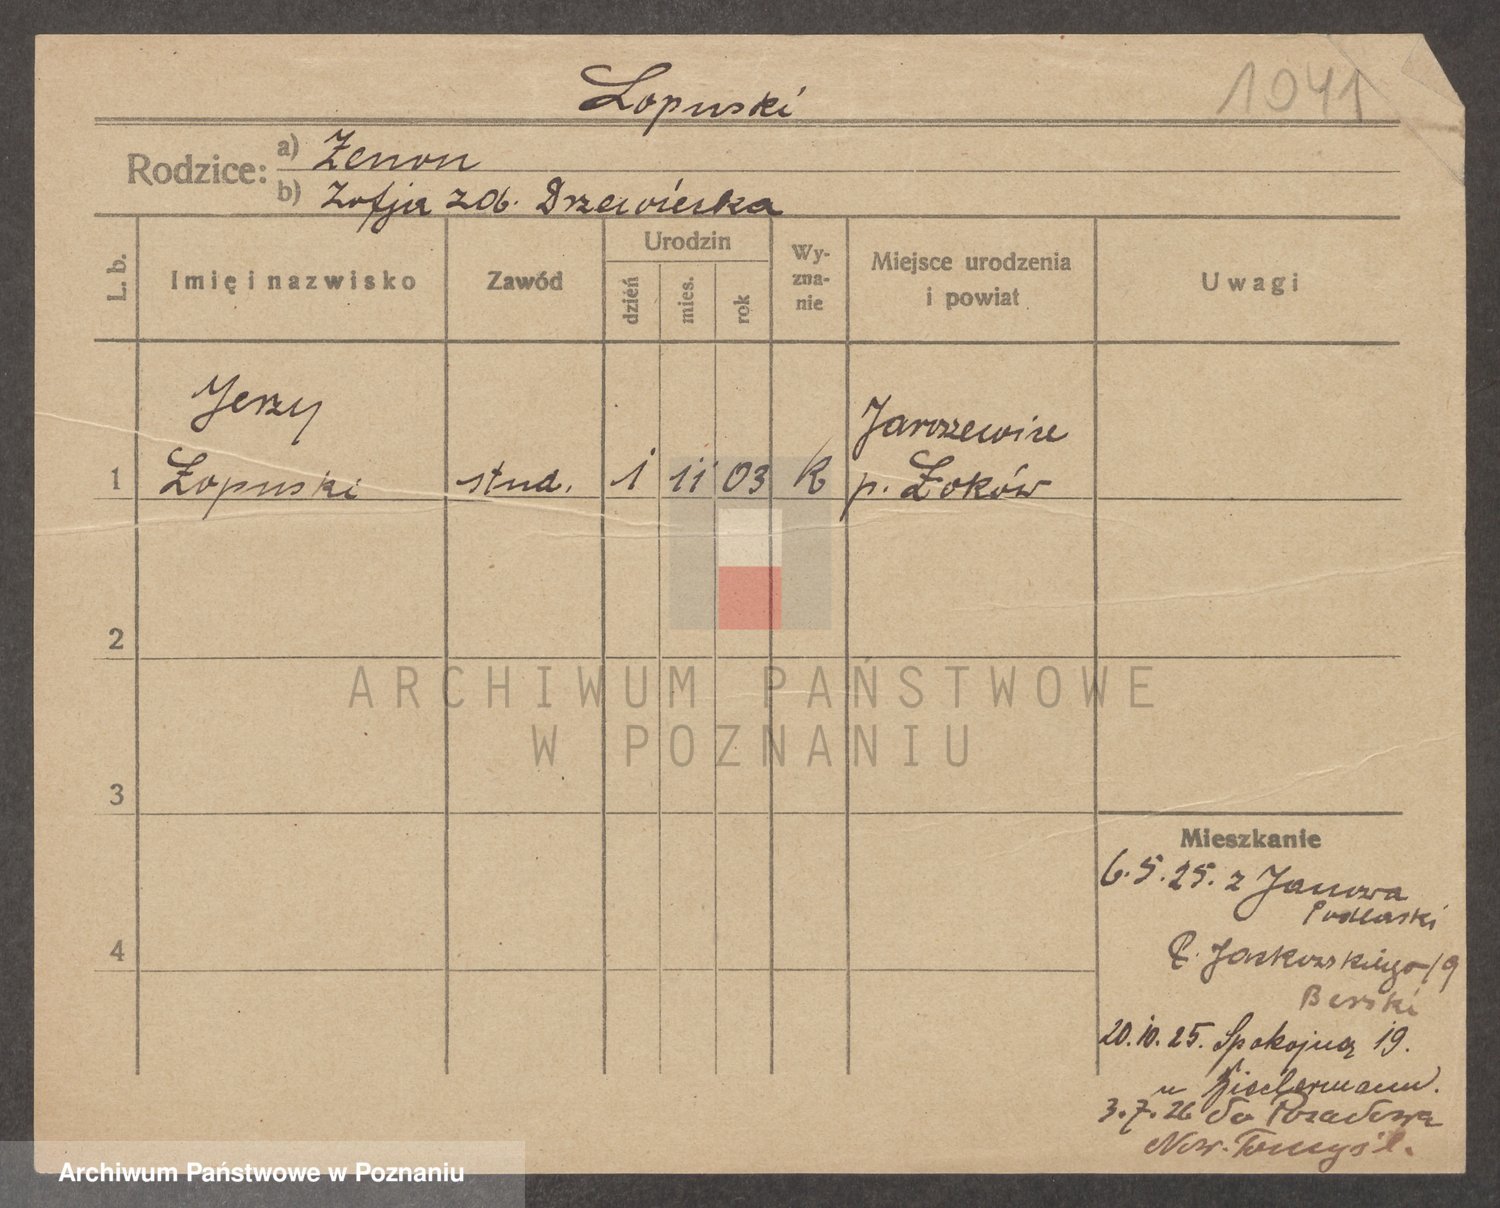 Łopuski
1041
Rodzice: a) Zenon
b) Zofja zdb. Drzewiecka
L. b.
Imię i nazwisko
Zawód
Urodzin
dzień
mies.
rok
Wy-
zna-
nie
Miejsce urodzenia
i powiat
Uwagi
Jerzy
Jarczewice
1 Łopuski stud. 1 11 03 R p. Łoków
2
ARCHIWUM PAŃSTWOWE
W POZNANIU
3
Mieszkanie
6.5.25. z Janowa
Podlaski
4
Jaskowskiego 19
Berski
20.10.25. Spokojną 19.
u
3.7.26 do
Now. Tomyśl.
Archiwum Państwowe w Poznaniu